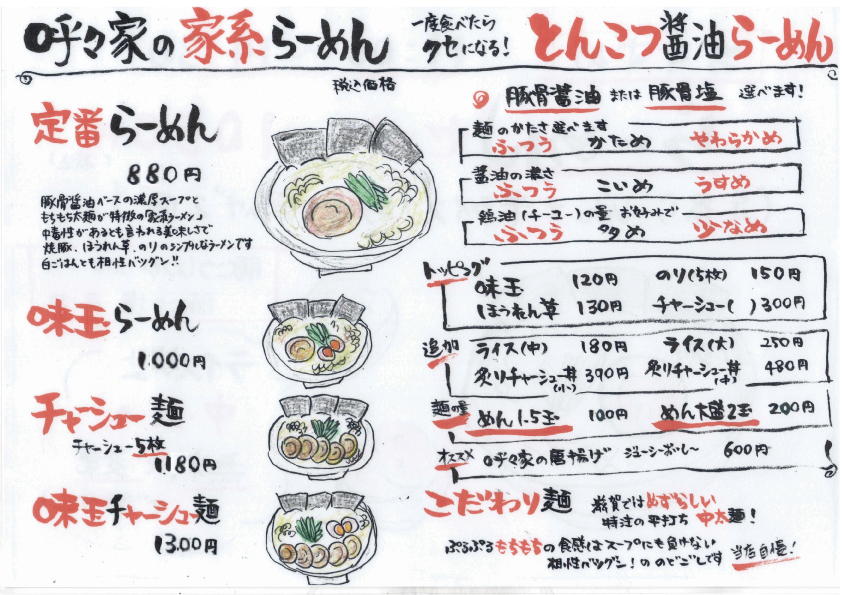 呼々家の家系らーめん
一度食べたら
クセになる!
とんこつ醤油らーめん
税込価格
定番らーめん
880円
豚骨醤油ベースの濃厚スープと
もちもち太麺が特徴の「家系ラーメン」
中毒性があるとも言われる美味しさで
焼豚、ほうれん草、のりのシンプルなラーメンです
白ごはんとも相性バツグン!!
味玉らーめん
1.000円
チャーシュー麺
チャーシュー5枚
1.180円
味玉チャーシュー麺
1300円
豚骨醤油 または 豚骨塩 選べます!
麺のかたさ選べます
ふつう かため やわらかめ
醤油の濃さ
ふつう こいめ うすめ
鶏油(チーユー)の量 お好みで
ふつう 多め 少なめ
トッピング
味玉 120円 のり(5枚) 150円
ほうれん草 130円 チャーシュー( )300円
追加
ライス(中) 180円 ライス(大) 250円
炙りチャーシュー丼(小) 390円 炙りチャーシュー丼(中) 480円
麺の量
めん1.5玉 100円 めん大盛2玉 200円
オススメ
呼々家の唐揚げ ジューシーおいし〜 600円
こだわり麺
滋賀ではめずらしい
特注の平打ち 中太麺!
ぷるぷるもちもちの食感はスープにも負けない
相性バツグン!ののどごしです
当店自慢!